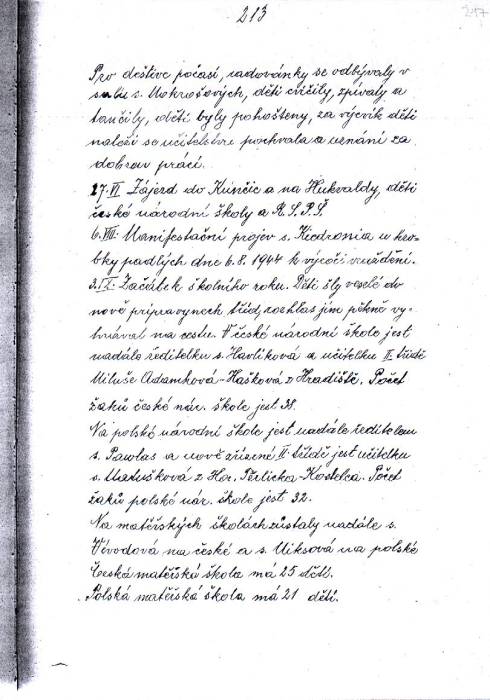 213
217
Pro deštive počasí, radovánky se odbývaly v
salu s. Mokrošových, děti cvičily, zpívaly a
tančily, děti byly pohošteny, za výcvik dětí
naleži se učitelstvu pochvala a uznání za
dobrou práci.
27.VI. Zájezd do Kunčic a na Hukvaldy, děti
české národní školy a R.S.P.Š.
6.VIII. Manifestační projev s. Kiedronia u hro-
bky padlých dne 6.8.1944 k výročí
3.IX. Začátek školního roku. Děti šly veselé do
nově připravynech tříd, rozhlas jim pěkně vy-
hrával na cestu. V české národní škole jest
nadále ředitelku s. Havlíková a učitelku II. třídě
Miluše Adamková-Hašková z Hradiště. Počet
žáků české nár. škole jest 38.
Na polské národní škole jest nadále ředitelem
s. Pawlas a nově zřízené II. třídě jest učitelku
s. Matušková z Hor. Těrlicka-Kostelca. Počet
žáků polské nár. škole jest 32.
Na mateřských školách zůstaly nadále s.
Vývodová na české a s. Miksová na polské
Česká mateřská škola má 25 dětí.
Polská mateřská škola má 21 dětí.